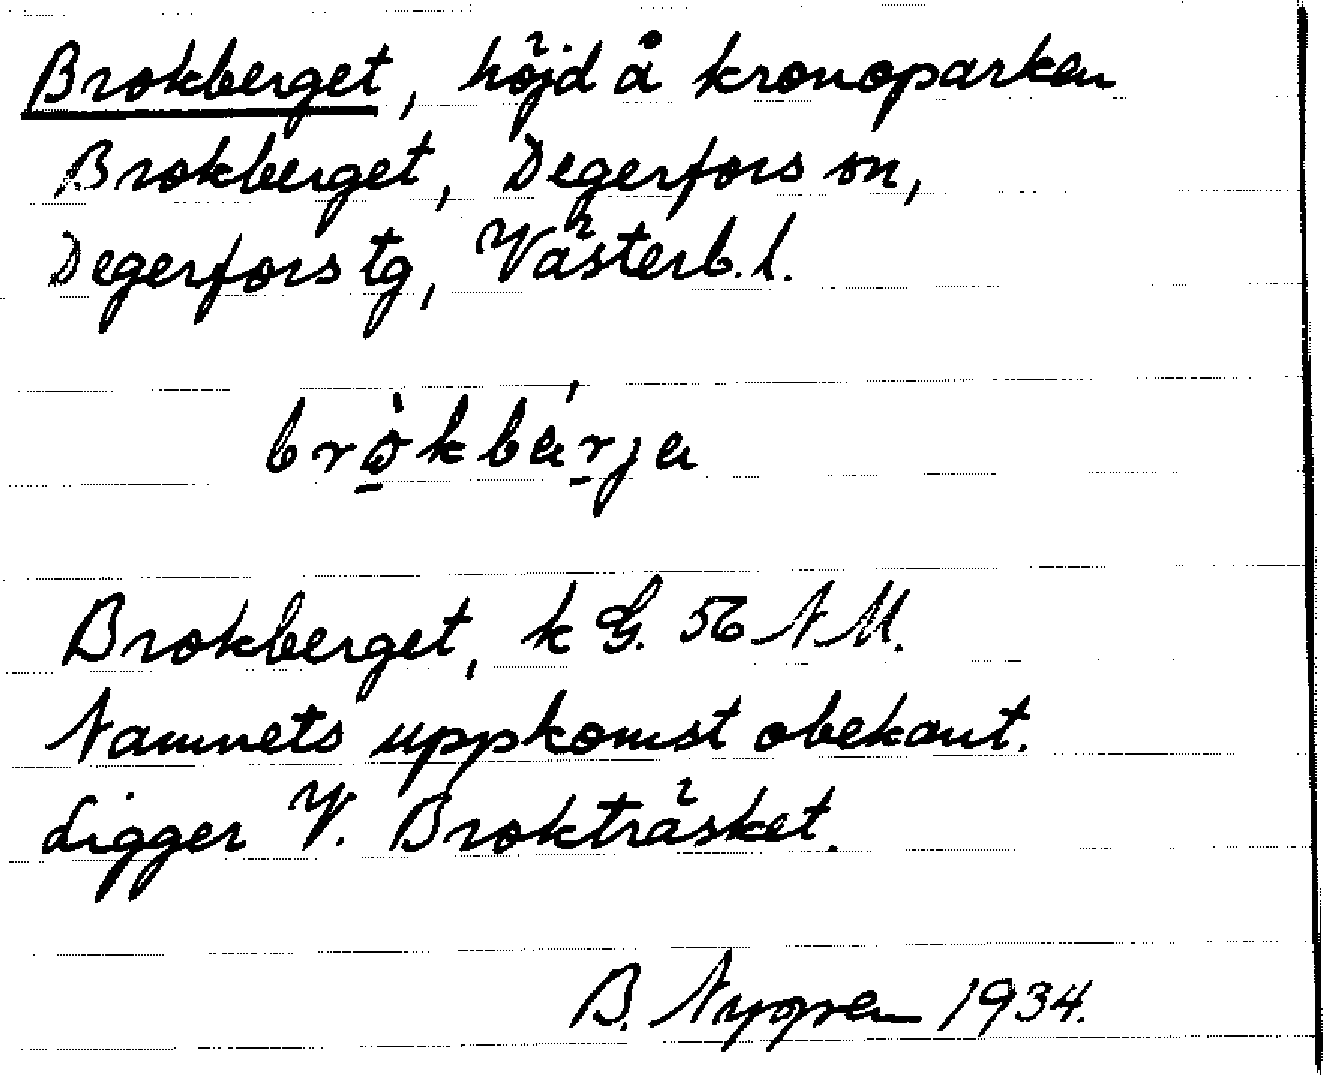 Brokberget, höjd å kronoparken
Brokberget, Degerfors sn,
Degerfors tg, Västerb. l.
brò̱kbár̠ja
Brokberget, k G. 56 N M.
Namnets uppkomst obekant.
Ligger V. Brokträsket.
B. Nygren 1934.